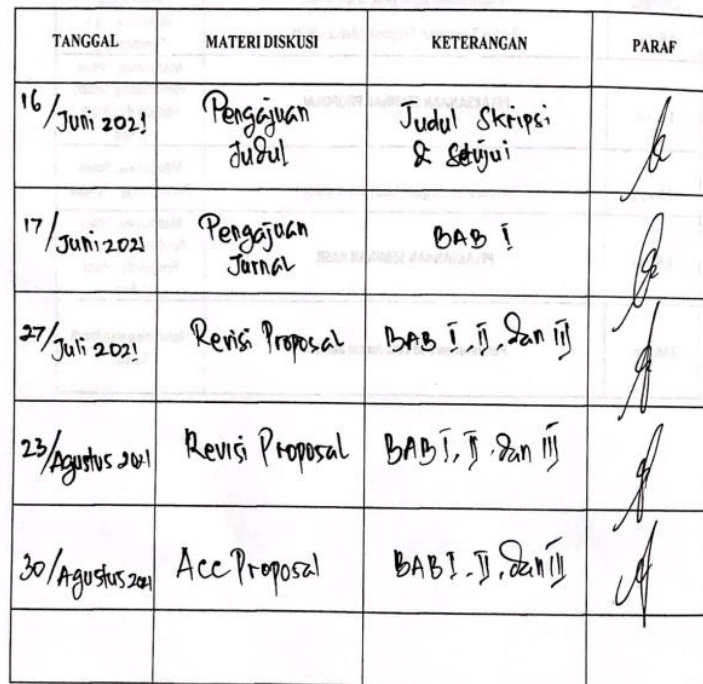 TANGGAL MATERI DISKUSI KETERANGAN PARAF
16/Juni 2021 Pengajuan Judul Judul Skripsi & Setujui
17/Juni 2021 Pengajuan Jurnal BAB I
27/Juli 2021 Revisi Proposal BAB I, II, dan III
23/Agustus 2021 Revisi Proposal BAB I, II, dan III
30/Agustus 2021 Acc Proposal BAB I, II, dan III